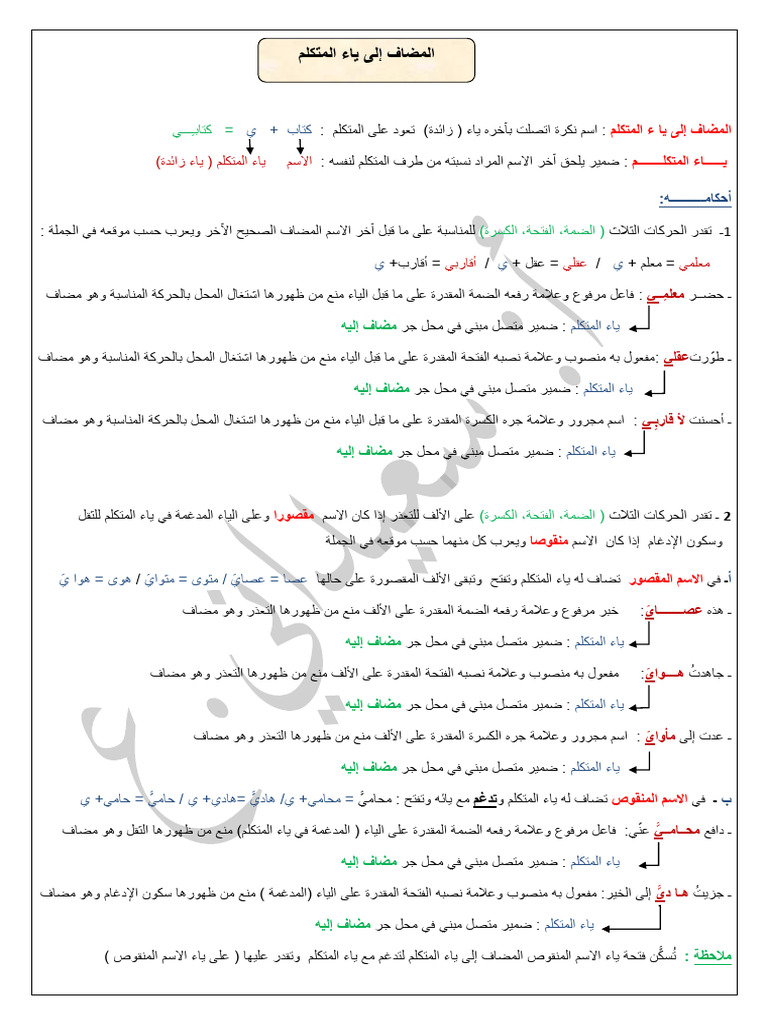 المضاف إلى ياء المتكلم
المضاف إلى يا ء المتكلم : اسم نكرة اتصلت بآخره ياء ( زائدة) تعود على المتكلم : كتاب + ي = كتابيـــي
يـــــاء المتكلـــــــم : ضمير يلحق آخر الاسم المراد نسبته من طرف المتكلم لنفسه : الاسم ياء المتكلم ( ياء زائدة)
أحكامـــــــــه:
1- تقدر الحركات الثلاث ( الضمة، الفتحة، الكسرة) للمناسبة على ما قبل آخر الاسم المضاف الصحيح الآخر ويعرب حسب موقعه في الجملة :
معلمي = معلم + ي / عقلي = عقل + ي / أقاربي = أقارب+ ي
ـ حضــر معلمِــي : فاعل مرفوع وعلامة رفعه الضمة المقدرة على ما قبل الياء منع من ظهورها اشتغال المحل بالحركة المناسبة وهو مضاف
ياء المتكلم : ضمير متصل مبني في محل جر مضاف إليه
ـ طوّرت عقلي :مفعول به منصوب وعلامة نصبه الفتحة المقدرة على ما قبل الياء منع من ظهورها اشتغال المحل بالحركة المناسبة وهو مضاف
ياء المتكلم : ضمير متصل مبني في محل جر مضاف إليه
ـ أحسنت لأ قاربِـي : اسم مجرور وعلامة جره الكسرة المقدرة على ما قبل الياء منع من ظهورها اشتغال المحل بالحركة المناسبة وهو مضاف
ياء المتكلم : ضمير متصل مبني في محل جر مضاف إليه
2 ـ تقدر الحركات الثلاث ( الضمة، الفتحة، الكسرة) على الألف للتعذر إذا كان الاسم مقصورا وعلى الياء المدغمة في ياء المتكلم للثقل
وسكون الإدغام إذا كان الاسم منقوصا ويعرب كل منهما حسب موقعه في الجملة
أـ في الاسم المقصور تضاف له ياء المتكلم وتفتح وتبقى الألف المقصورة على حالها عصا = عصايَ / مثوى = مثوايَ / هوى = هوا يَ
ـ هذه عصـــــــايَ: خبر مرفوع وعلامة رفعه الضمة المقدرة على الألف منع من ظهورها التعذر وهو مضاف
ياء المتكلم : ضمير متصل مبني في محل جر مضاف إليه
ـ جاهدتُ هـــوايَ: مفعول به منصوب وعلامة نصبه الفتحة المقدرة على الألف منع من ظهورها التعذر وهو مضاف
ياء المتكلم : ضمير متصل مبني في محل جر مضاف إليه
ـ عدت إلى مأوايَ : اسم مجرور وعلامة جره الكسرة المقدرة على الألف منع من ظهورها التعذر وهو مضاف
ياء المتكلم : ضمير متصل مبني في محل جر مضاف إليه
ب ـ في الاسم المنقوص تضاف له ياء المتكلم وتدغم مع يائه وتفتح : محاميَّ = محامي+ ي/ هاديَّ =هادي+ ي / حاميَّ = حامي+ ي
ـ دافع محــامــيَّ عنّي: فاعل مرفوع وعلامة رفعه الضمة المقدرة على الياء ( المدغمة في ياء المتكلم) منع من ظهورها الثقل وهو مضاف
ياء المتكلم : ضمير متصل مبني في محل جر مضاف إليه
ـ جزيتُ هـا ديَّ إلى الخير: مفعول به منصوب وعلامة نصبه الفتحة المقدرة على الياء (المدغمة ) منع من ظهورها سكون الإدغام وهو مضاف
ياء المتكلم : ضمير متصل مبني في محل جر مضاف إليه
ملاحظة : تُسكَّن فتحة ياء الاسم المنقوص المضاف إلى ياء المتكلم لتدغم مع ياء المتكلم وتقدر عليها ( على ياء الاسم المنقوص )
أ. سعيداني. ع